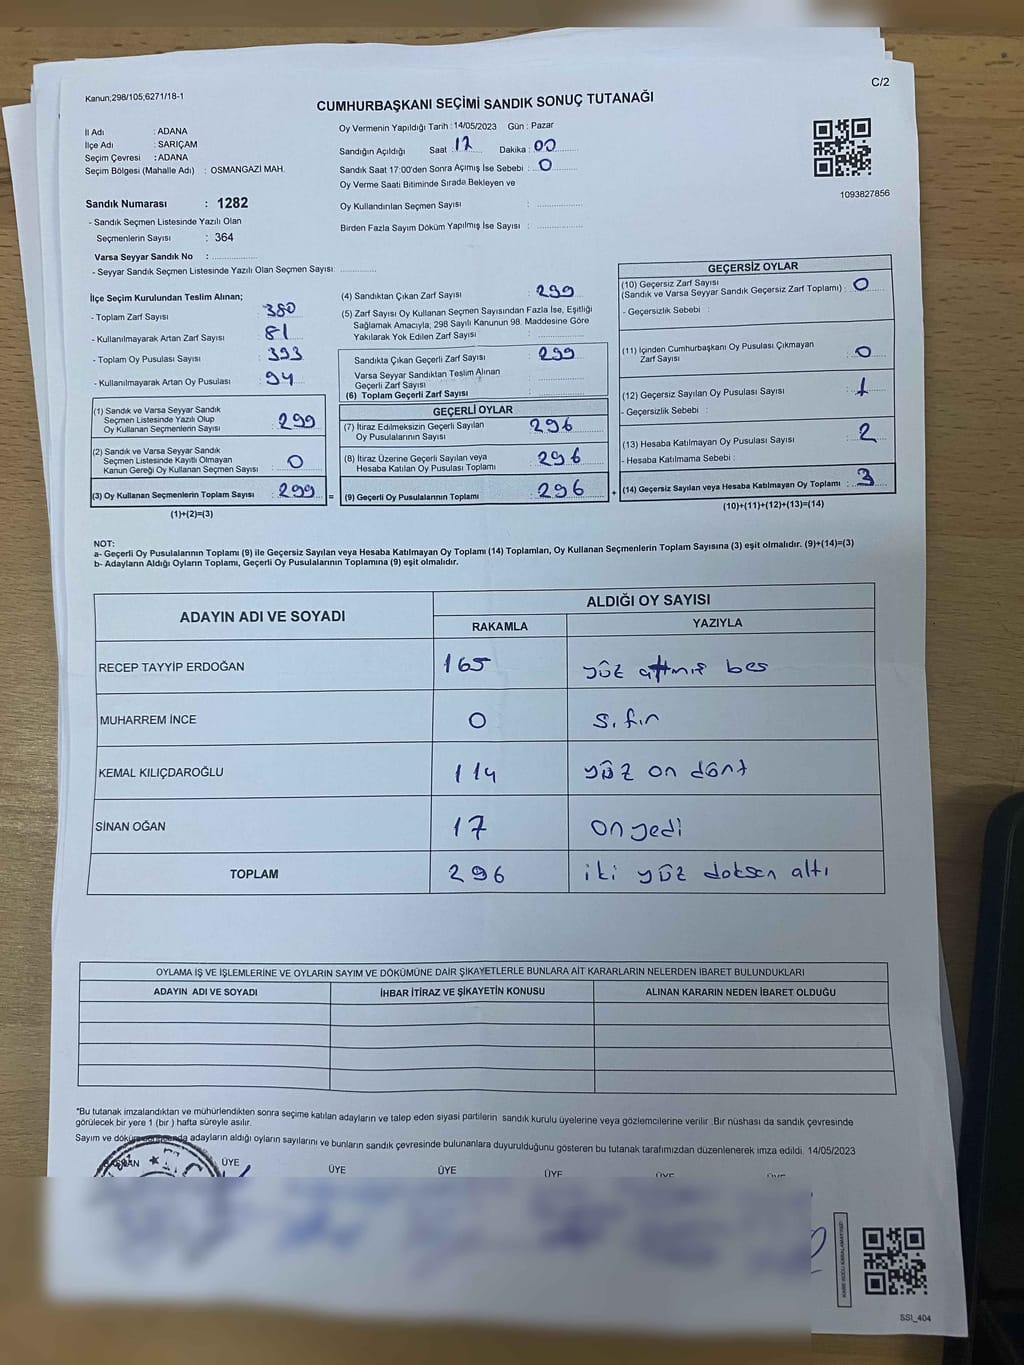 C/2
Kanun;298/105;6271/18-1
CUMHURBAŞKANI SEÇİMİ SANDIK SONUÇ TUTANAĞI
İl Adı : ADANA
İlçe Adı : SARIÇAM
Seçim Çevresi : ADANA
Seçim Bölgesi (Mahalle Adı) : OSMANGAZİ MAH.
Oy Vermenin Yapıldığı Tarih : 14/05/2023 Gün : Pazar
Sandığın Açıldığı Saat : 17 Dakika : 00
Sandık Saat 17:00'den Sonra Açımış İse Sebebi : 0
Oy Verme Saati Bitiminde Sırada Bekleyen ve
Oy Kullandırılan Seçmen Sayısı :
Birden Fazla Sayım Döküm Yapılmış İse Sayısı :
1093827856
Sandık Numarası : 1282
- Sandık Seçmen Listesinde Yazılı Olan
Seçmenlerin Sayısı : 364
Varsa Seyyar Sandık No :
- Seyyar Sandık Seçmen Listesinde Yazılı Olan Seçmen Sayısı:
İlçe Seçim Kurulundan Teslim Alınan;
- Toplam Zarf Sayısı : 380
- Kullanılmayarak Artan Zarf Sayısı : 81
- Toplam Oy Pusulası Sayısı : 393
- Kullanılmayarak Artan Oy Pusulası : 94
(1) Sandık ve Varsa Seyyar Sandık
Seçmen Listesinde Yazılı Olup
Oy Kullanan Seçmenlerin Sayısı : 299
(2) Sandık ve Varsa Seyyar Sandık
Seçmen Listesinde Kayıtlı Olmayan
Kanun Gereği Oy Kullanan Seçmen Sayısı : 0
(3) Oy Kullanan Seçmenlerin Toplam Sayısı : 299 =
(1)+(2)=(3)
(4) Sandıktan Çıkan Zarf Sayısı : 299
(5) Zarf Sayısı Oy Kullanan Seçmen Sayısından Fazla İse, Eşitliği
Sağlamak Amacıyla; 298 Sayılı Kanunun 98. Maddesine Göre
Yakılarak Yok Edilen Zarf Sayısı :
Sandıkta Çıkan Geçerli Zarf Sayısı : 299
Varsa Seyyar Sandıktan Teslim Alınan
Geçerli Zarf Sayısı :
(6) Toplam Geçerli Zarf Sayısı :
GEÇERLİ OYLAR
(7) İtiraz Edilmeksizin Geçerli Sayılan
Oy Pusulalarının Sayısı : 296
(8) İtiraz Üzerine Geçerli Sayılan veya
Hesaba Katılan Oy Pusulası Toplamı : 296
(9) Geçerli Oy Pusulalarının Toplamı : 296 +
GEÇERSİZ OYLAR
(10) Geçersiz Zarf Sayısı
(Sandık ve Varsa Seyyar Sandık Geçersiz Zarf Toplamı) : 0
- Geçersizlik Sebebi :
(11) İçinden Cumhurbaşkanı Oy Pusulası Çıkmayan
Zarf Sayısı : 0
(12) Geçersiz Sayılan Oy Pusulası Sayısı : 1
- Geçersizlik Sebebi :
(13) Hesaba Katılmayan Oy Pusulası Sayısı : 2
- Hesaba Katılmama Sebebi :
(14) Geçersiz Sayılan veya Hesaba Katılmayan Oy Toplamı : 3
(10)+(11)+(12)+(13)=(14)
NOT:
a- Geçerli Oy Pusulalarının Toplamı (9) ile Geçersiz Sayılan veya Hesaba Katılmayan Oy Toplamı (14) Toplamları, Oy Kullanan Seçmenlerin Toplam Sayısına (3) eşit olmalıdır. (9)+(14)=(3)
b- Adayların Aldığı Oyların Toplamı, Geçerli Oy Pusulalarının Toplamına (9) eşit olmalıdır.
ADAYIN ADI VE SOYADI ALDIĞI OY SAYISI
RAKAMLA YAZIYLA
RECEP TAYYİP ERDOĞAN 165 yüz altmış beş
MUHARREM İNCE 0 sıfır
KEMAL KILIÇDAROĞLU 114 yüz on dört
SİNAN OĞAN 17 on yedi
TOPLAM 296 iki yüz doksan altı
OYLAMA İŞ VE İŞLEMLERİNE VE OYLARIN SAYIM VE DÖKÜMÜNE DAİR ŞİKAYETLERLE BUNLARA AİT KARARLARIN NELERDEN İBARET BULUNDUKLARI
ADAYIN ADI VE SOYADI İHBAR İTİRAZ VE ŞİKAYETİN KONUSU ALINAN KARARIN NEDEN İBARET OLDUĞU
"Bu tutanak imzalandıktan ve mühürlendikten sonra seçime katılan adayların ve talep eden siyasi partilerin sandık kurulu üyelerine veya gözlemcilerine verilir .Bir nüshası da sandık çevresinde
görülecek bir yere 1 (bir ) hafta süreyle asılır.
Sayım ve döküm adayların aldığı oyların sayılarını ve bunların sandık çevresinde bulunanlara duyurulduğunu gösteren bu tutanak tarafımızdan düzenlenerek imza edildi. 14/05/2023
ÜYE ÜYE ÜYE ÜYE
SSI_404